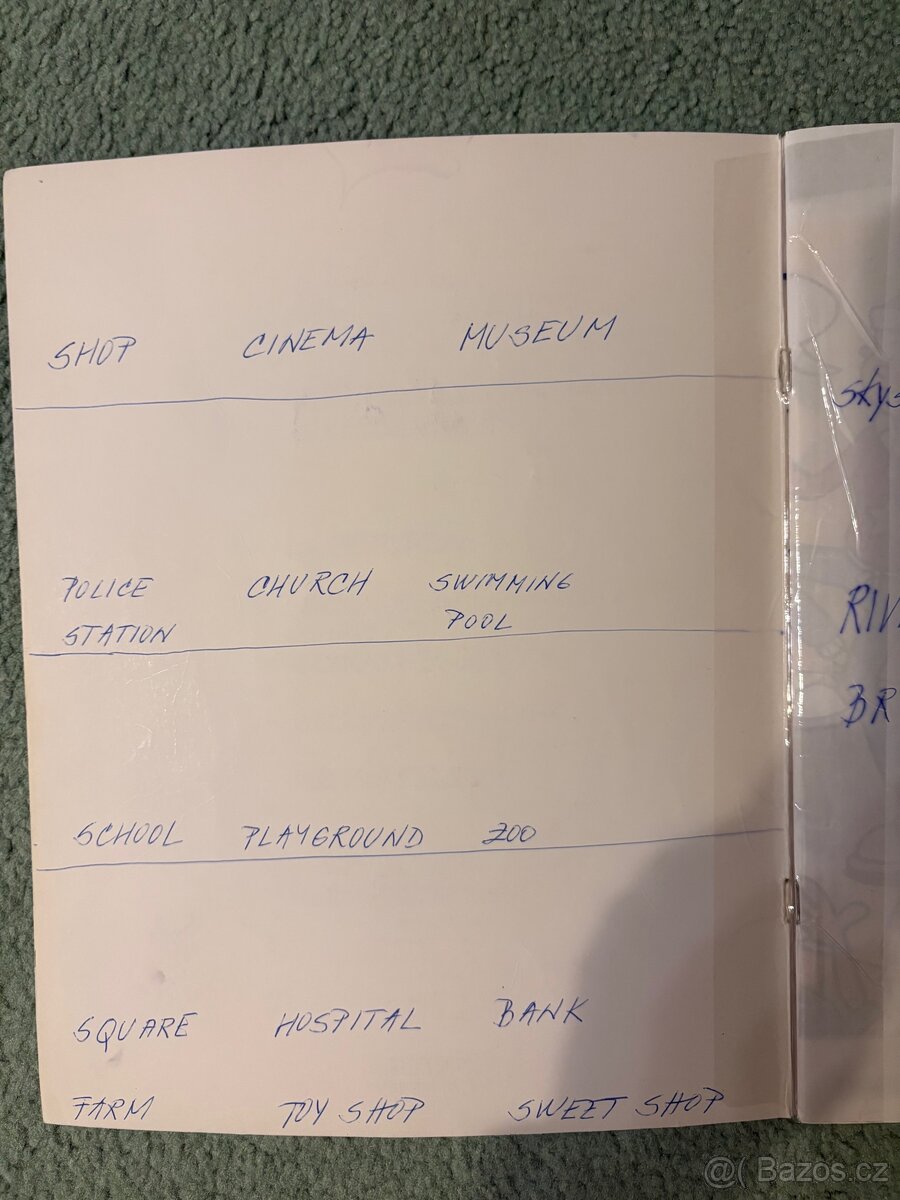 SHOP CINEMA MUSEUM
POLICE CHURCH SWIMMING
STATION POOL
SCHOOL PLAYGROUND ZOO
SQUARE HOSPITAL BANK
FARM TOY SHOP SWEET SHOP
skys
RIV
BR
@( Bazos.cz